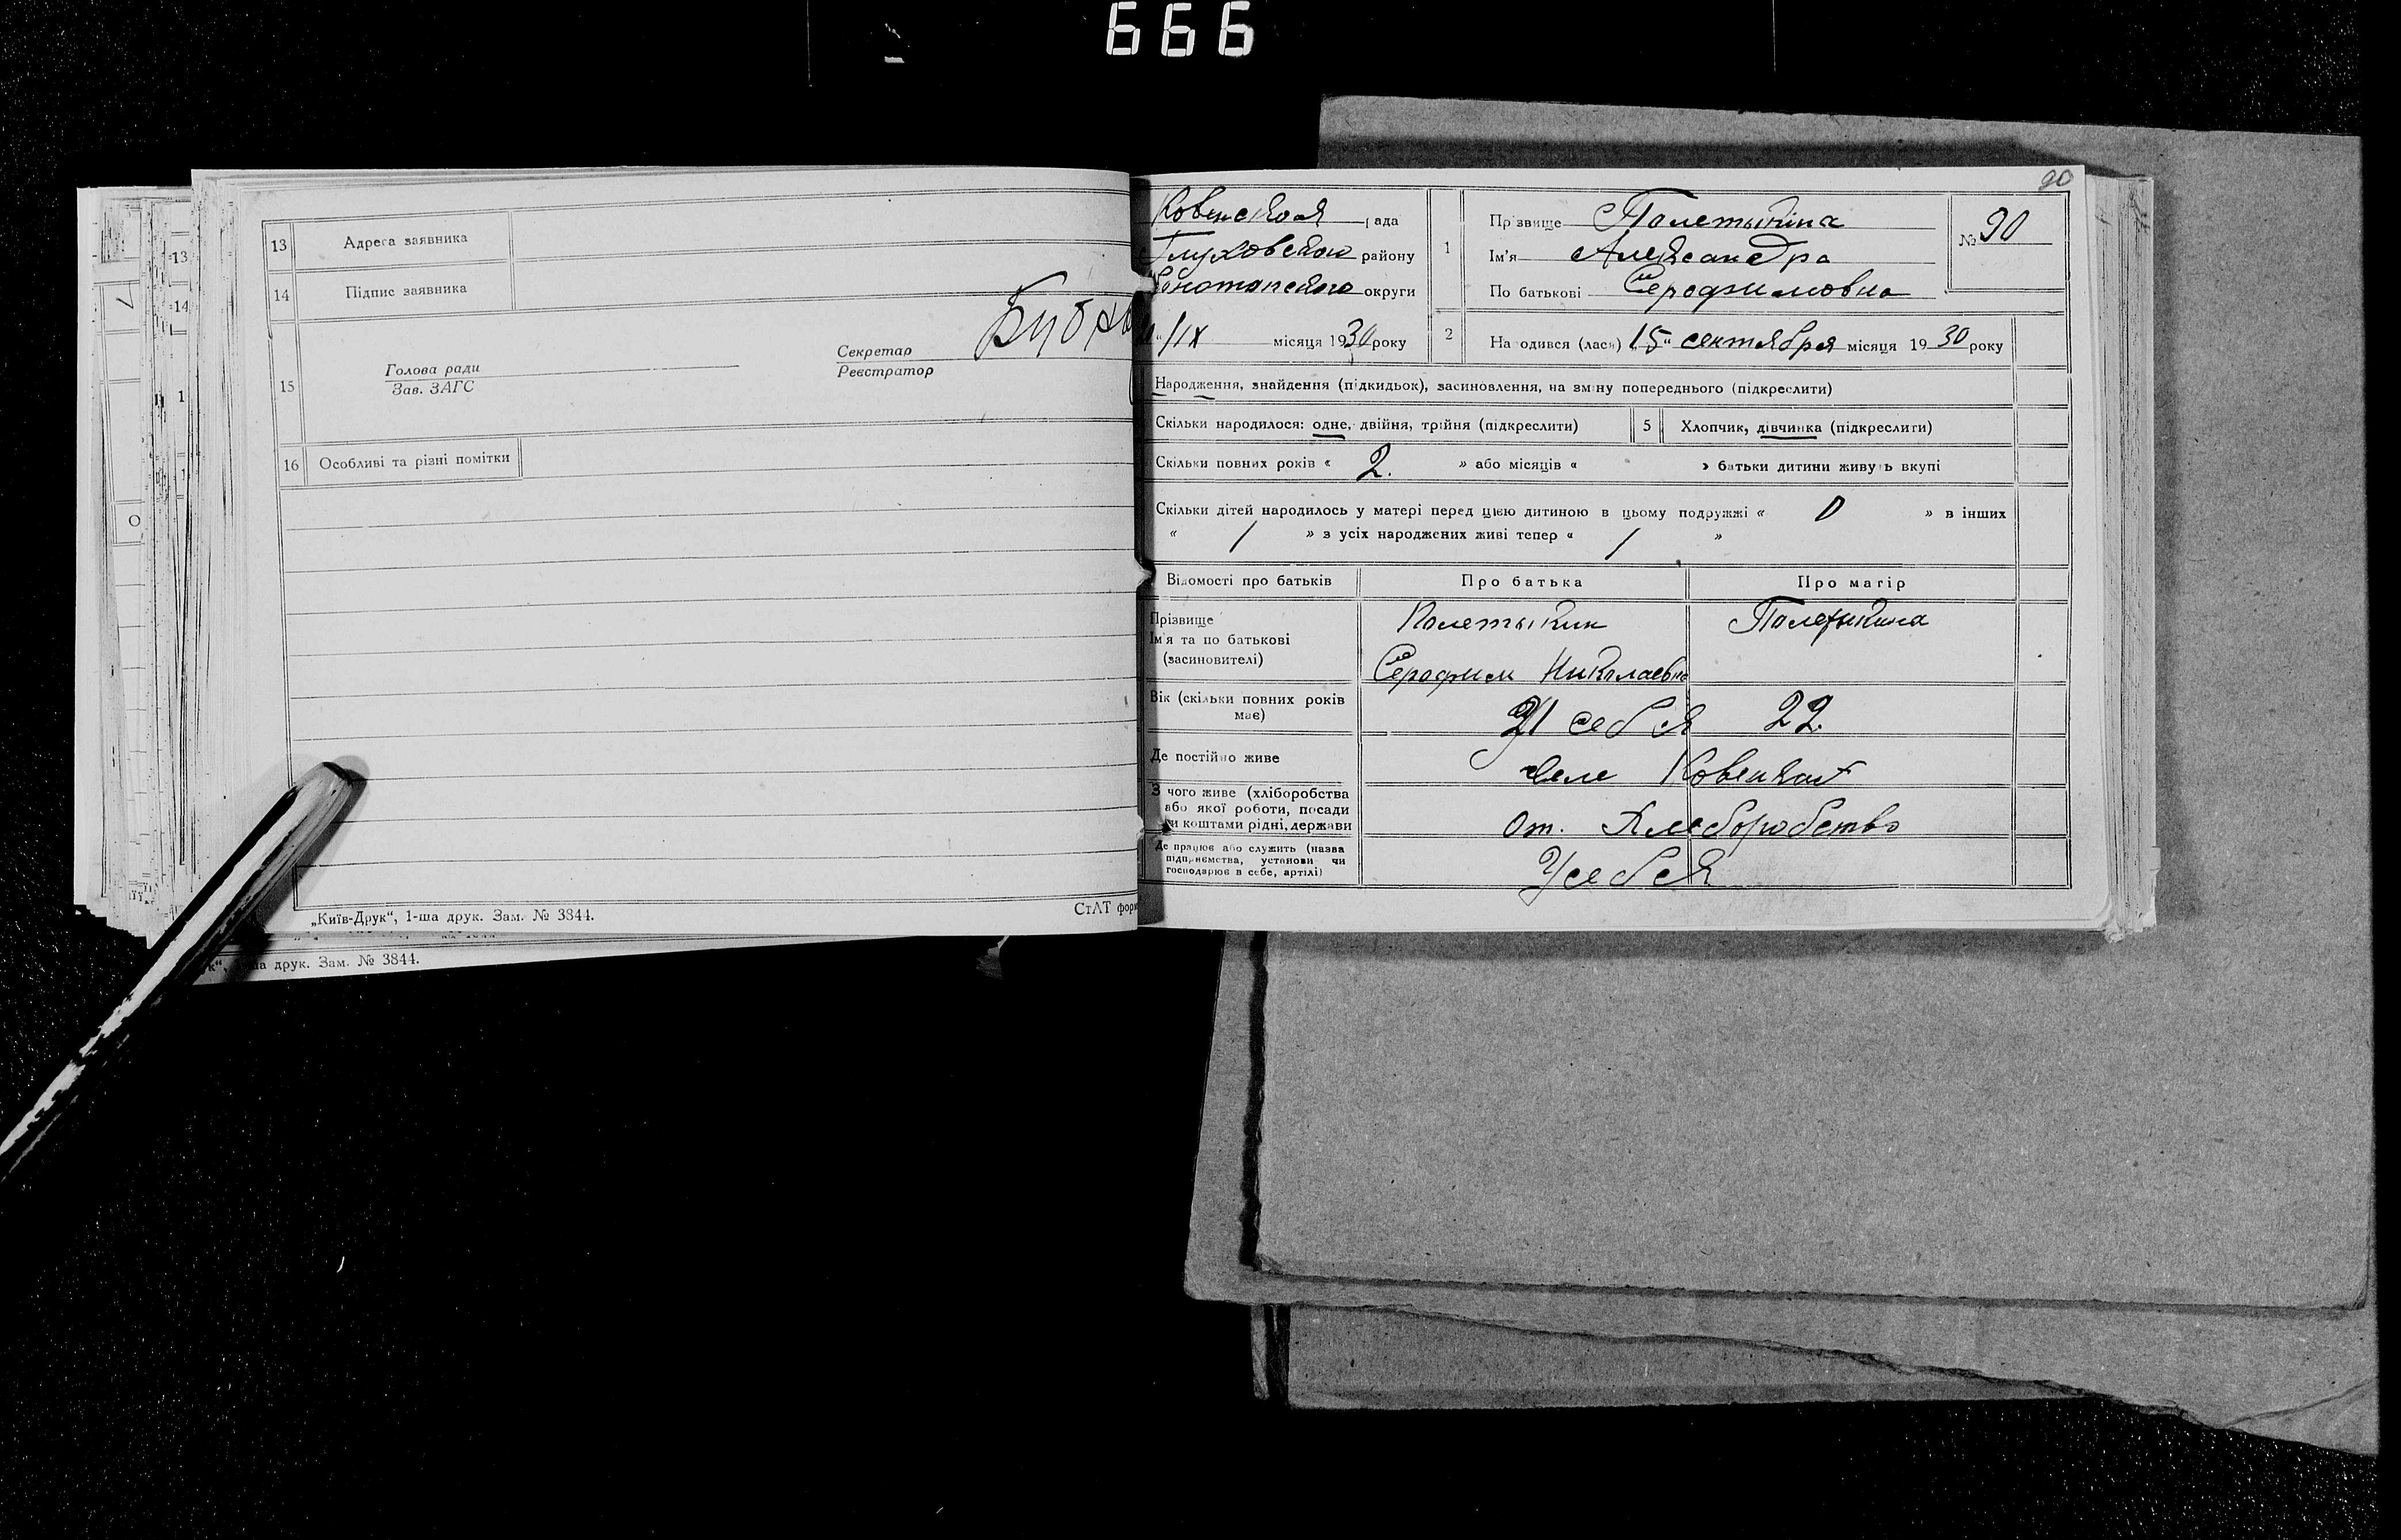 666
13 Адреса заявника
14 Підпис заявника
15 Голова ради
Зав. ЗАГС
Секретар
Реєстратор
16 Особливі та різні помітки
„Київ-Друк“, 1-ша друк. Зам. № 3844.
СтАТ форм
друк. Зам. № 3844.
13
14
1
90
Ковенская рада
Глуховского району
Конотопского округи
/IX місяця 1930 року
1 Прізвище Полетыкина
Ім'я Александра
По батькові Серафимовна
№ 90
2 Народився (лася) „15“ сентября місяця 1930 року
Народження, знайдення (підкидьок), засиновлення, на зміну попереднього (підкреслити)
Скільки народилося: одне, двійня, трійня (підкреслити)
5 Хлопчик, дівчинка (підкреслити)
Скільки повних років « 2. » або місяців « » батьки дитини живуть вкупі
Скільки дітей народилось у матері перед цією дитиною в цьому подружжі « 0 » в інших
« / » з усіх народжених живі тепер « / »
Відомості про батьків Про батька Про матір
Прізвище Полетыкин Полетыкина
Ім'я та по батькові
(засиновителі) Серафим Николаевич
Вік (скільки повних років
має) 21 22.
Де постійно живе Селе
З чого живе (хліборобства
або якої роботи, посади
чи коштами рідні, держави От. Хлеборобство
Де працює або служить (назва
підприємства, установи чи
господарює в себе, артілі) У себя